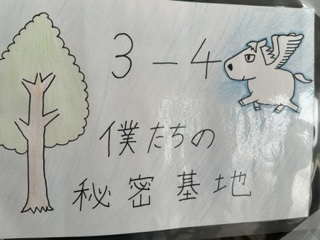 3-4
僕たちの
秘密基地